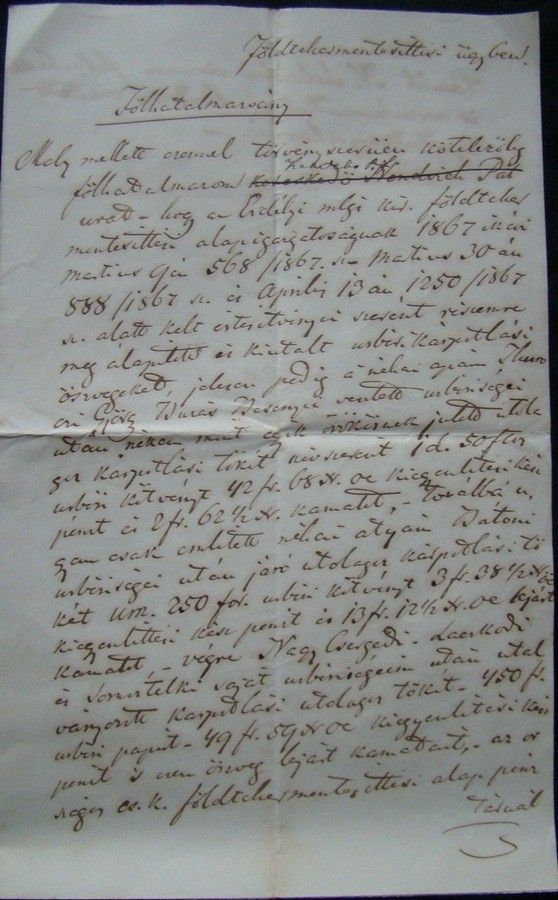 Földtehermentesittési ügyben.
Fölhatalmazvány
Mely mellett ezennel törvényszerüen kötelezőleg
fölhatalmazom
urat – hogy az Erdélyi kir. földteher
mentesittési alapigazgatóságnak 1867 ikévi
martius 9én 568/1867. sz. – Martius 30 án
888/1867 sz. és Aprilis 13 án 1250/1867
sz. alatt kelt értesitvényei szerént részemre
meg állapitott és kiutalt urbéri kárpótlási
öszvegeket, jelesen pedig a néhai apám
után nékem mint egyik örökösnek jutott utóla
gos kárpótlási tőkét névszerént 1 d. 50 ftos
urbéri kötvényt 42 fr. 68 xr. oé kiegyenlittési kész
pénzt és 2 fr. 62 ½ xr. kamatot, – Továbbá u,
gyan csak emlitett néhai atyám Bátoni
urbériségei után járó utólagos kárpótlási tő
két um. 250 fos. urbéri kötvényt 3 fr. 38 ½ xr oé
kiegyenlittési kész pénzt és 13 fr. 12 ½ xr. oé lejárt
kamatot, – végre Nagy Csergedi – Laczkodi
és Somostelki saját urbériségeim után utal
ványozott kárpótlási utólagos tőkét – 450 fr.
urbéri papirt – 49 fr. 59 xr oé kiegyenlittési kész
pénzt is ezen öszveg lejárt kamatait, – az or
szágos cs. k. földtehermentesittési alap pénz
tárnál